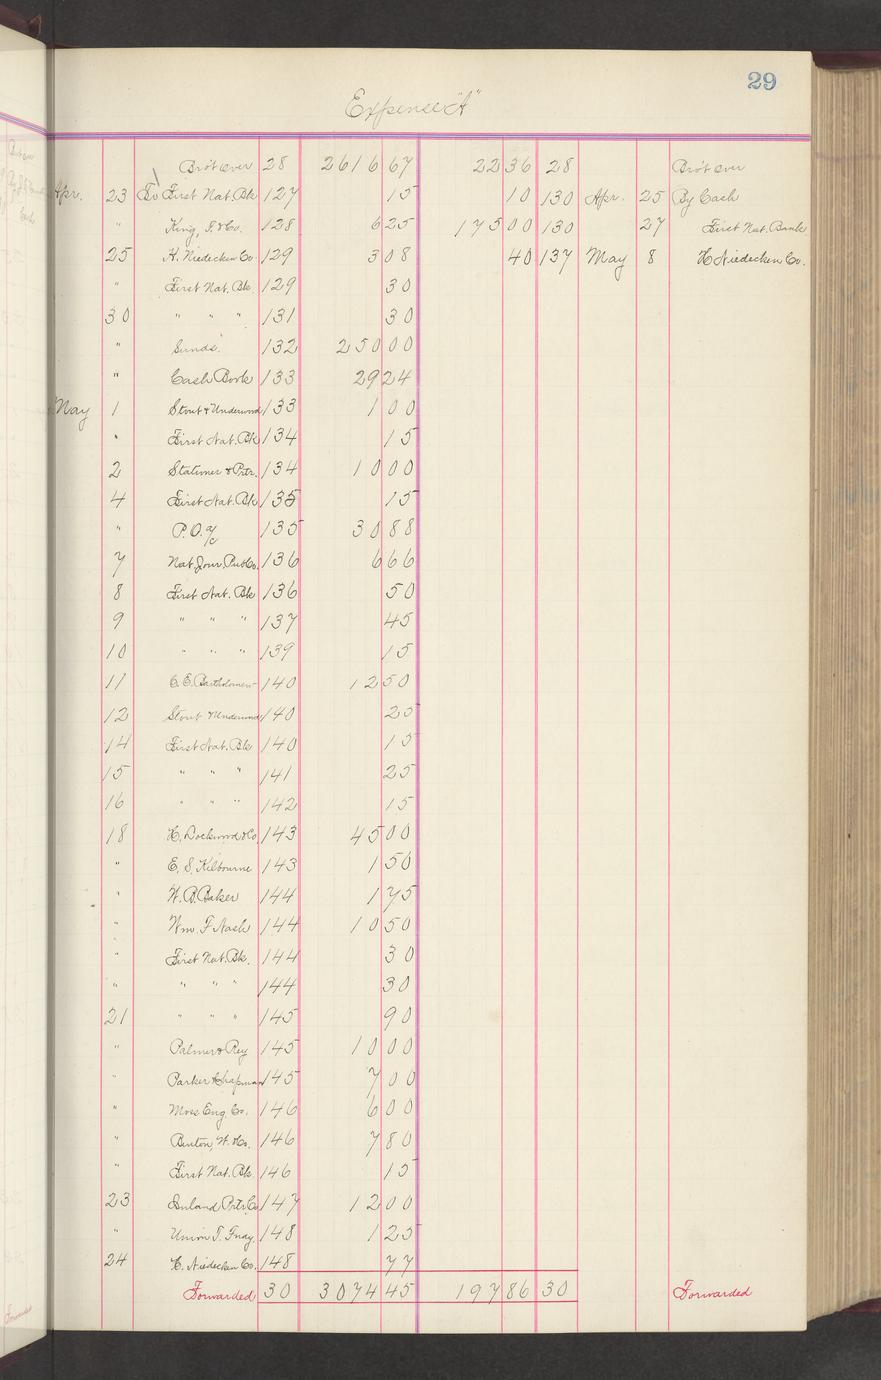 29
Expense "A"
Bro't over 28 2616 67 22 36 28 Bro't over
Apr. 23 To First Nat. Bk 127 15 10 130 Apr. 25 By Cash
" King, S. & Co. 128 6 25 175 00 130 27 First Nat. Bank
25 H. Niedecken Co. 129 3 08 40 137 May 8 H. Niedecken Co.
" First Nat. Bk. 129 30
30 " " " 131 30
" Sunds. 132 250 00
" Cash Book 133 29 24
May 1 Stout & Underwood 133 1 00
" First Nat. Bk 134 15
2 Stationer & Prtr. 134 10 00
4 First Nat. Bk 135 15
" P.O. a/c 135 30 88
7 Nat. Jour. Pub Co. 136 6 66
8 First Nat. Bk 136 50
9 " " " 137 45
10 " " " 139 15
11 C. E. Bartholomew 140 12 50
12 Stout & Underwood 140 25
14 First Nat. Bk 140 15
15 " " " 141 25
16 " " " 142 15
18 H. Lockwood & Co. 143 45 00
" E. S. Kilbourne 143 1 50
" W. B. Baker 144 1 75
" Wm. F. Nash 144 10 50
" First Nat. Bk. 144 30
" " " " 144 30
21 " " " 145 90
" Palmer & Rey 145 10 00
" Parker & Chapman 145 7 00
" Moss Eng Co. 146 6 00
" Benton, W. & Co. 146 7 80
" First Nat. Bk. 146 15
23 Inland Prtr. Co 147 12 00
" Union T. Fndy. 148 1 25
24 H. Niedecken Co. 148 77
Forwarded 30 3074 45 197 86 30 Forwarded